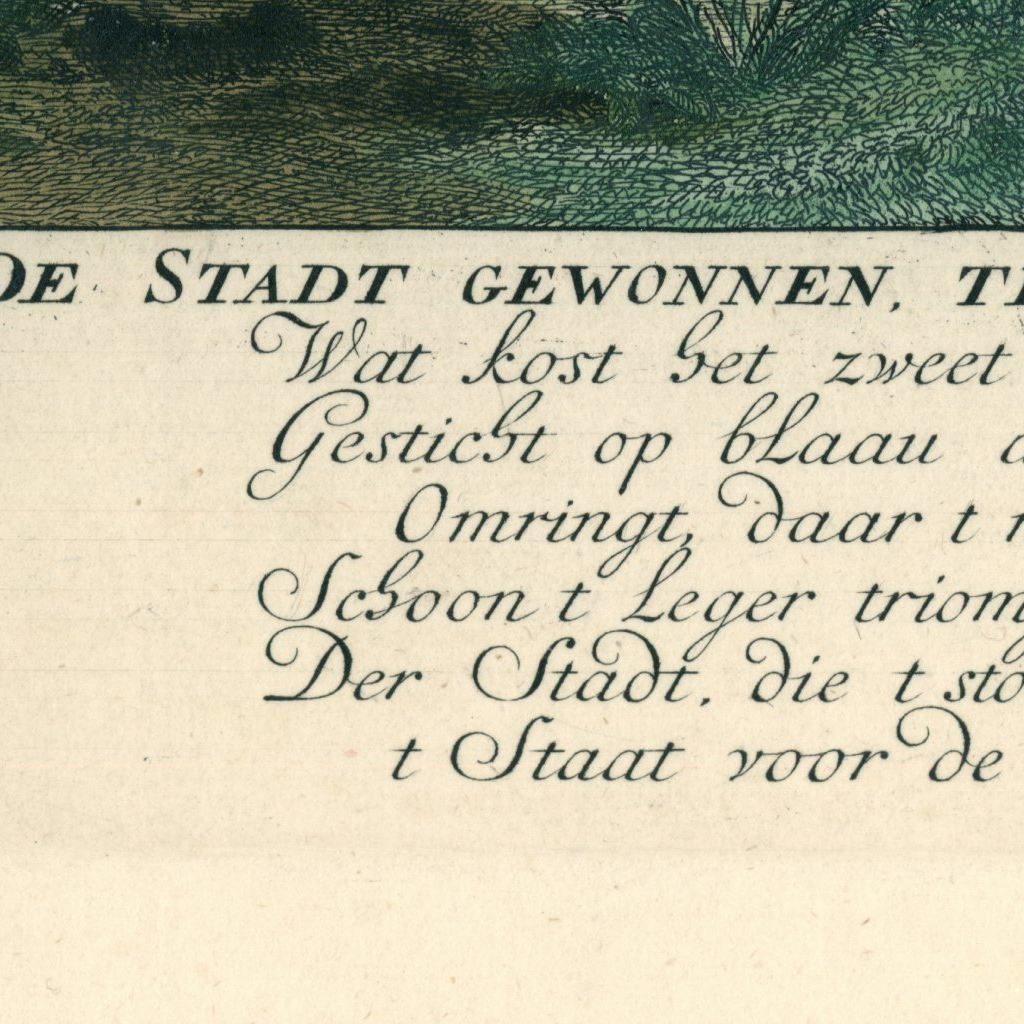 DE STADT GEWONNEN, TE
Wat kost het zweet
Gesticht op blaau
Omringt, daar t
Schoon t Leger triom
Der Stadt, die t sto
t Staat voor de